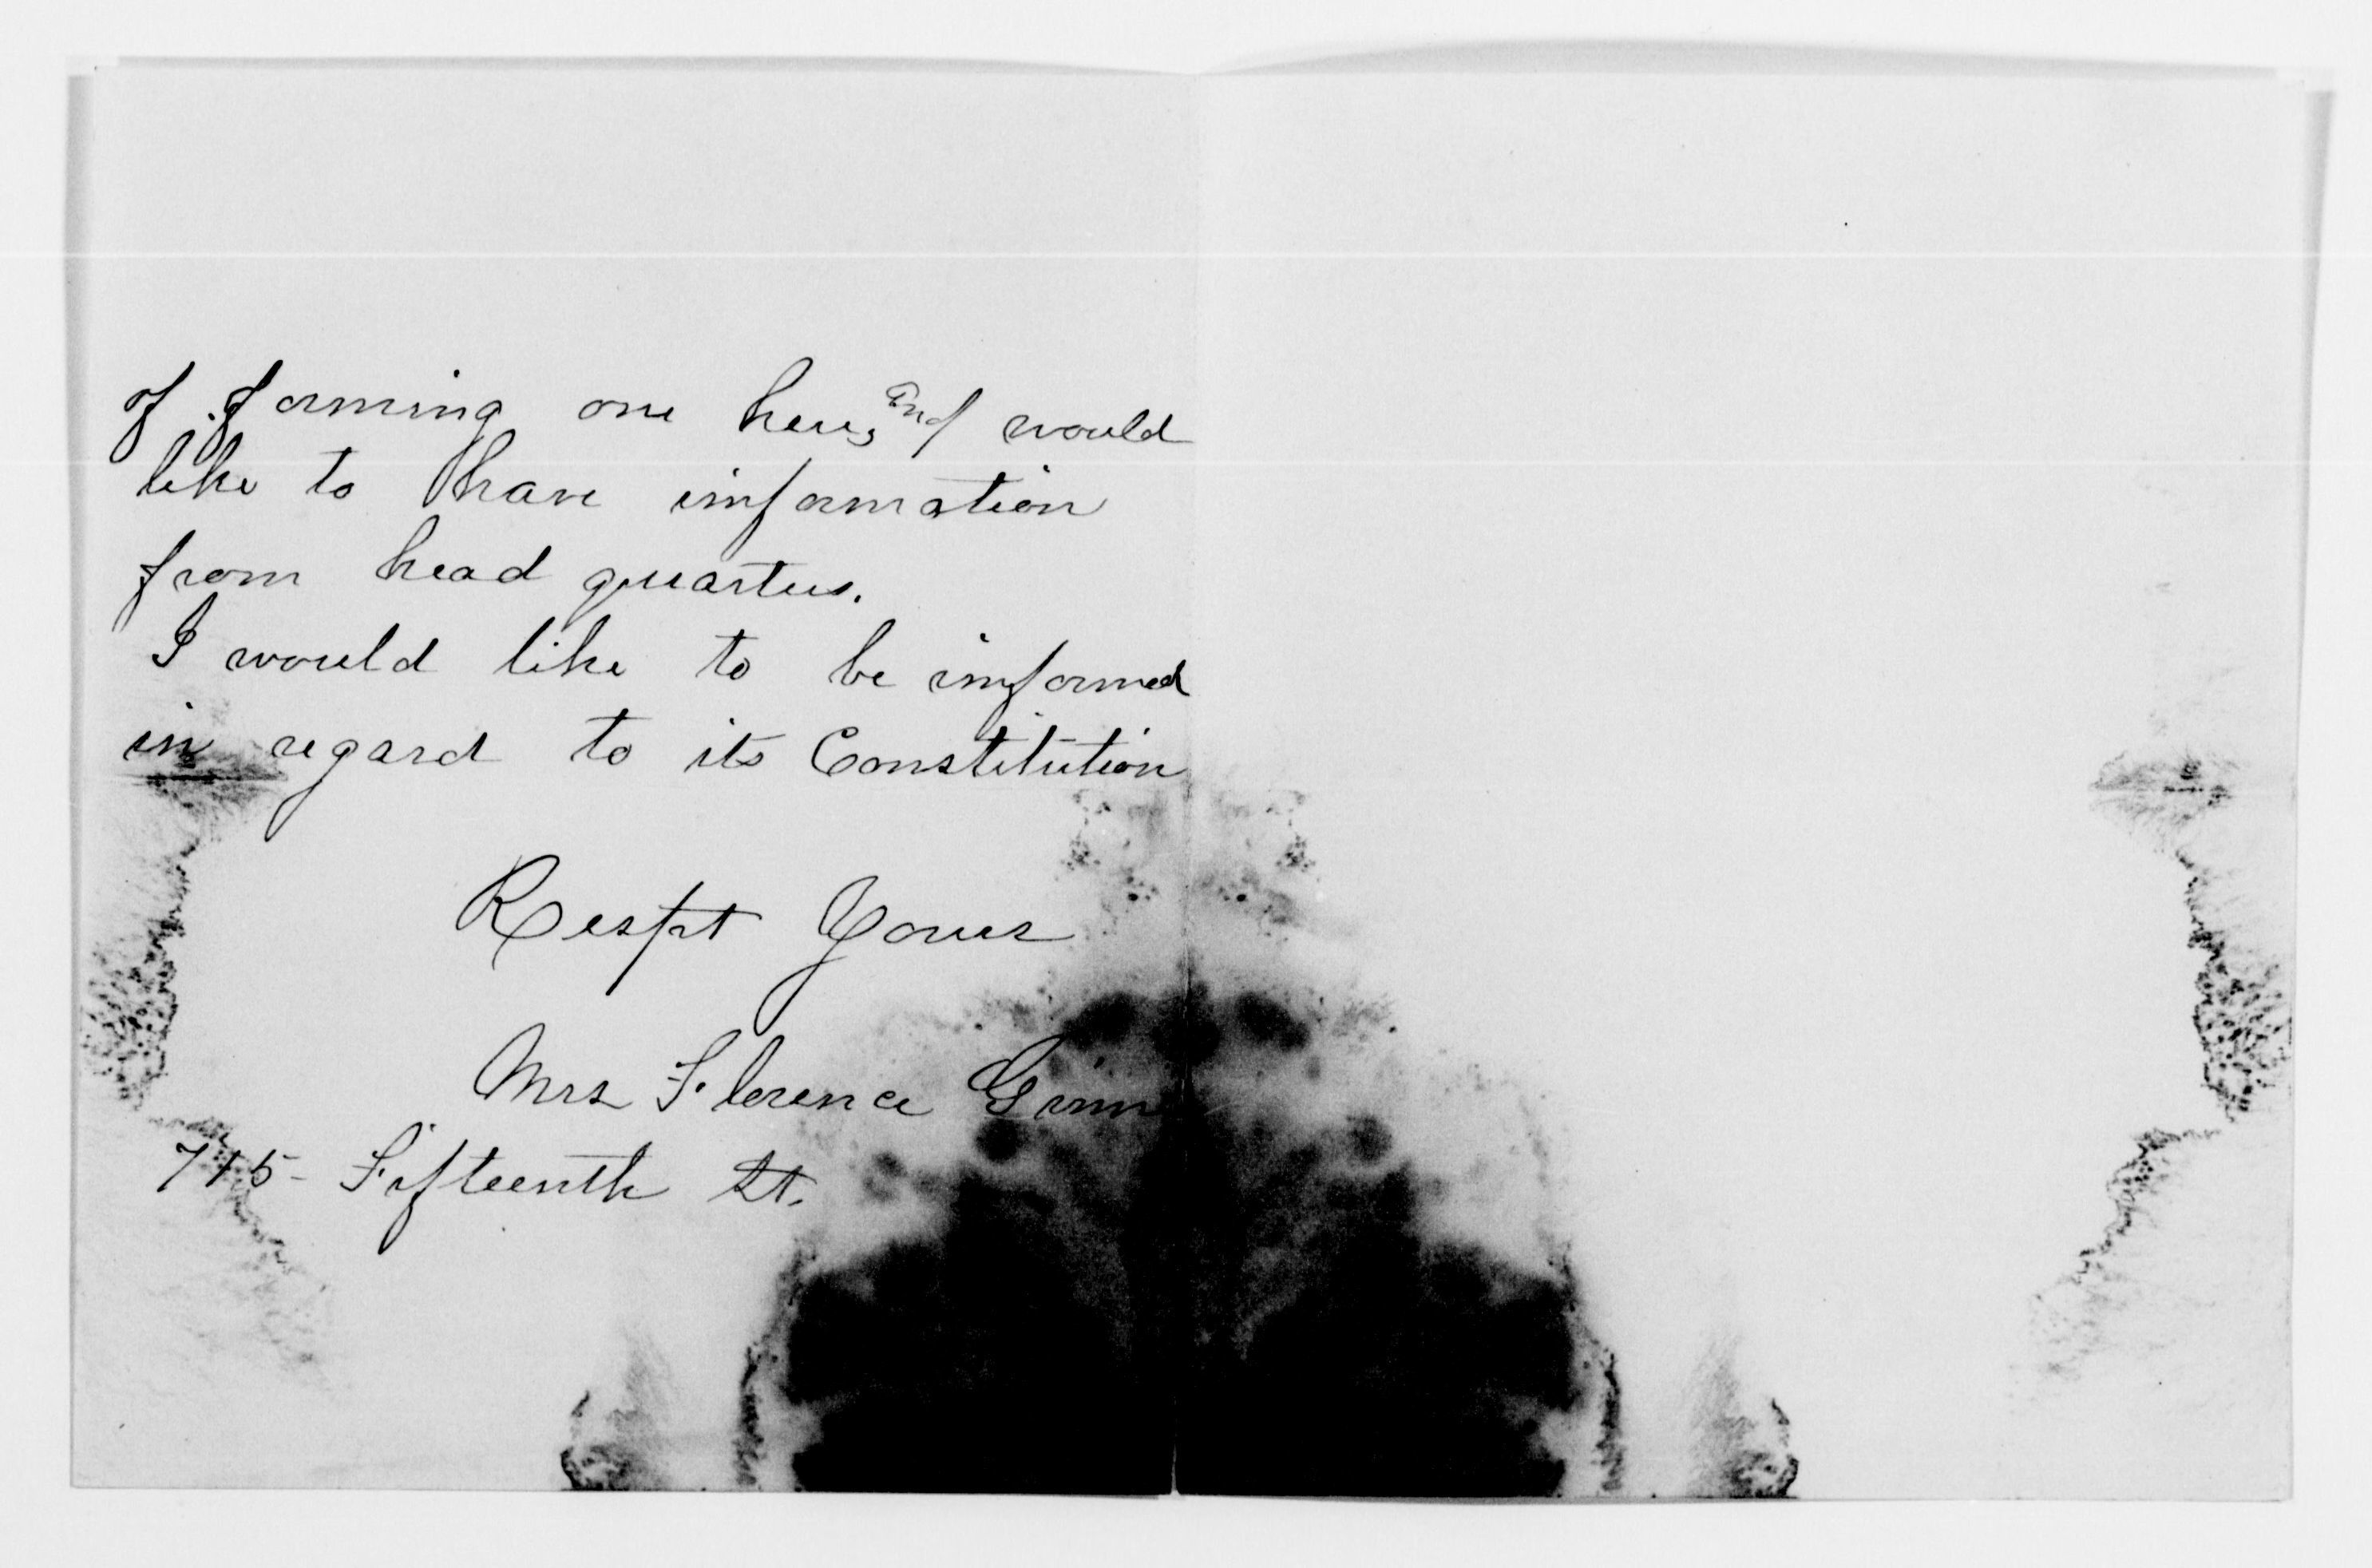 of forming one here, and would
like to have information
from head quarters.
I would like to be informed
in regard to its Constitution
Respt Yours
Mrs Florence
715 - Fifteenth St.